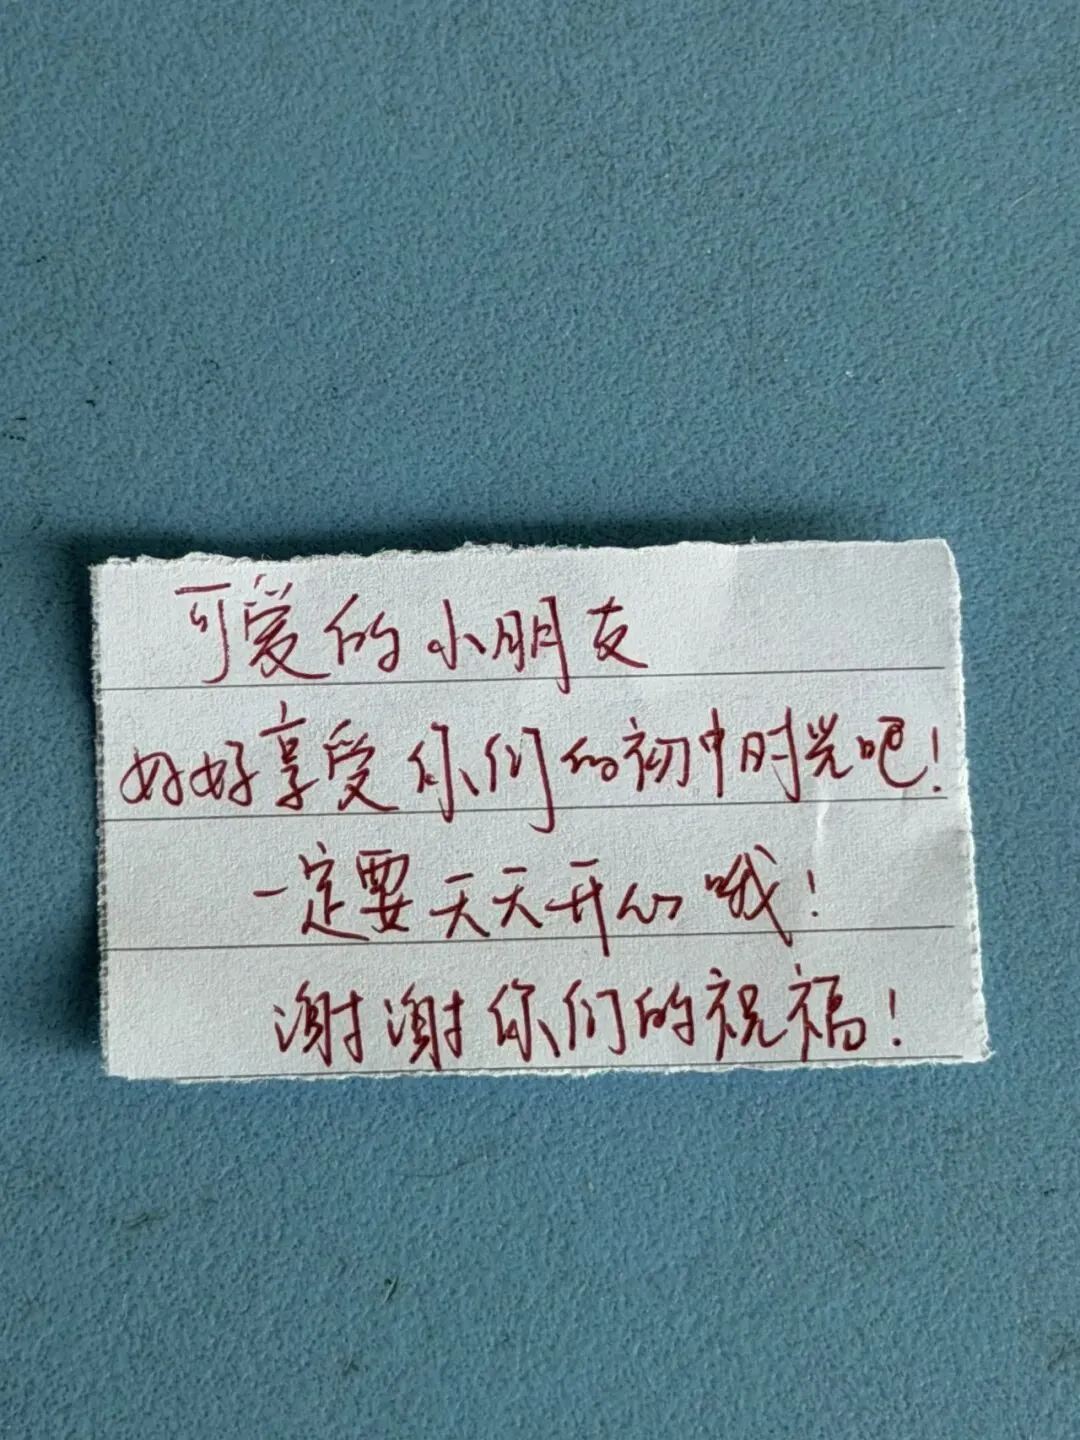 可爱的小朋友
好好享受你们的初中时光吧！
一定要天天开心哦！
谢谢你们的祝福！